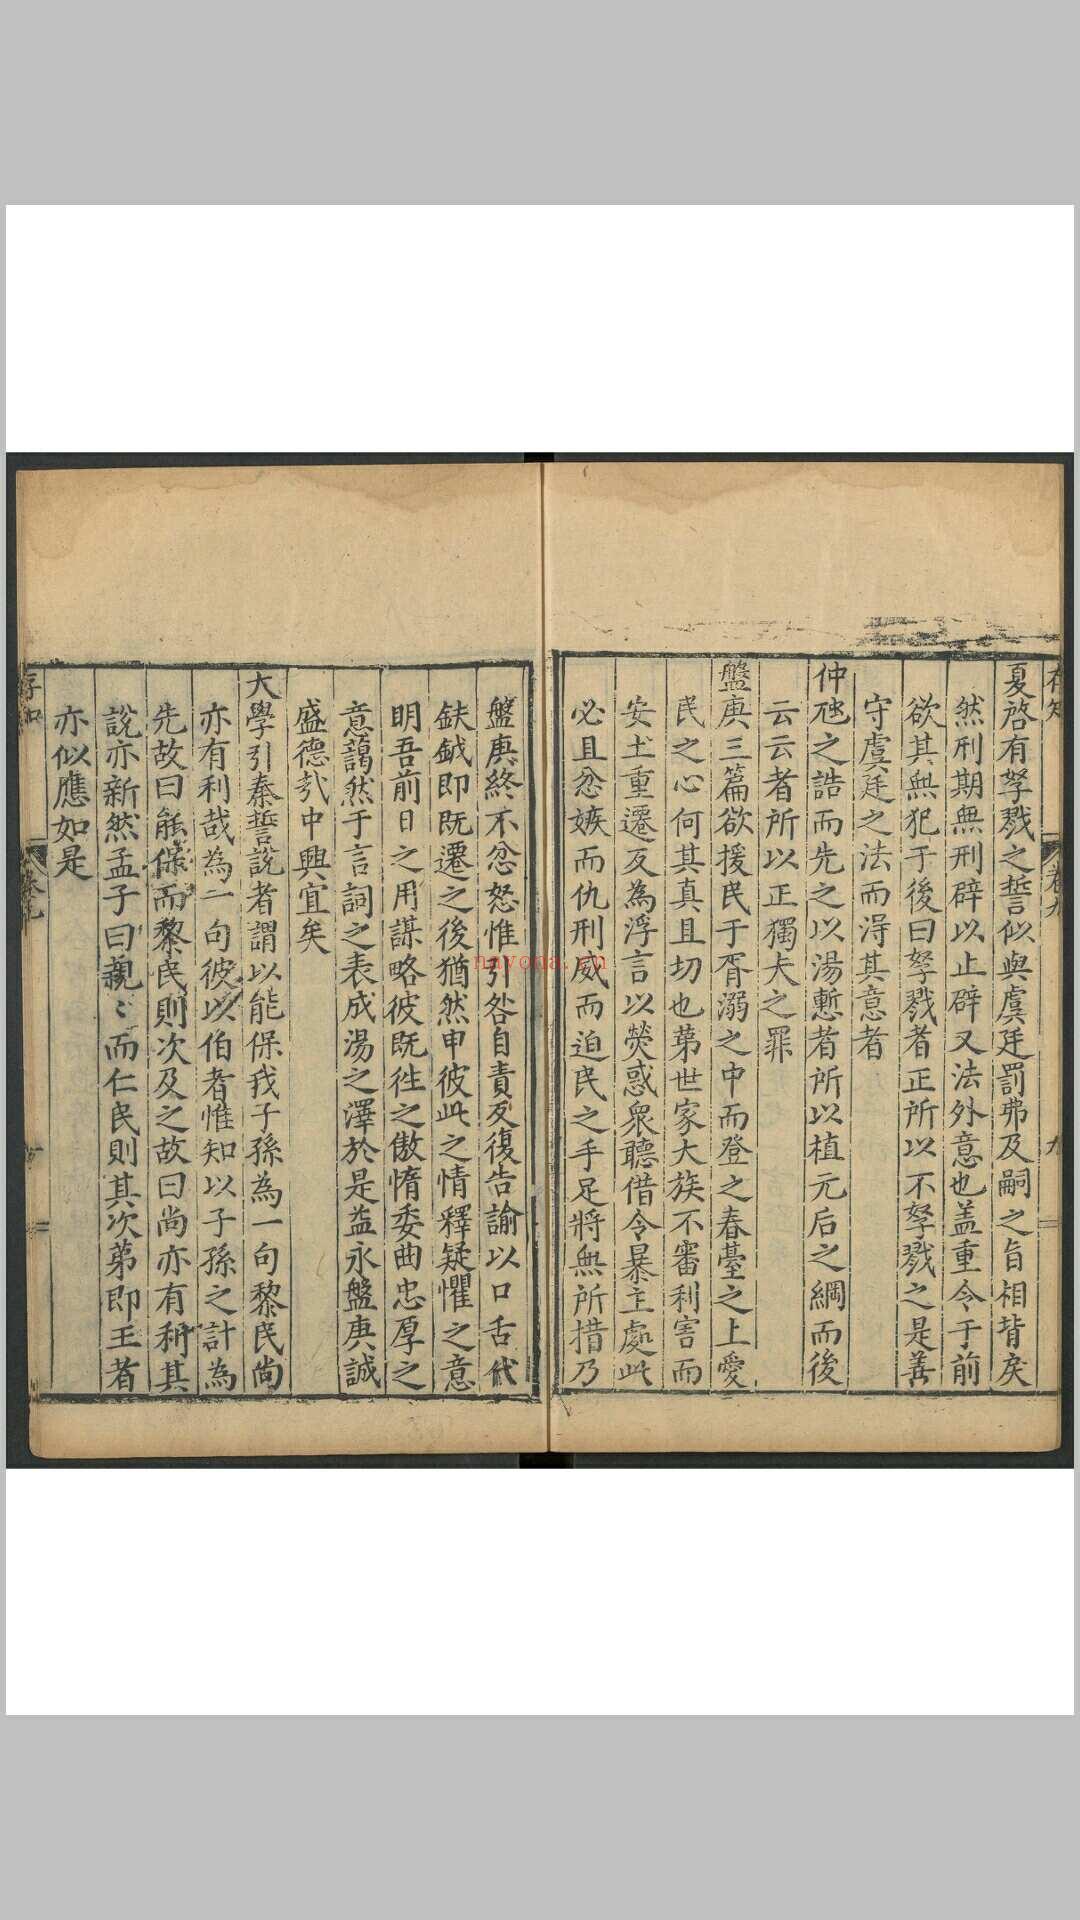 夏啓有孥戮之誓似與虞廷罰弗及嗣之旨相背戾
然刑期無刑辟以止辟又法外意也盖重令于前
欲其無犯于後曰孥戮者正所以不孥戮之是善
守虞廷之法而淂其意者
仲虺之誥而先之以湯慙者所以植元后之綱而後
云云者所以正獨夫之罪
盤庚三篇欲援民于胥溺之中而登之春臺之上愛
民之心何其真且切也苐世家大族不審利害而
安土重遷反為浮言以熒惑衆聽借令暴主處此
必且忿嫉而仇刑威而迫民之手足將無所措乃
盤庚終不忿怒惟引咎自責反復告諭以口舌代
鈇鉞即既遷之後猶然申彼此之情釋疑懼之意
明吾前日之用謀略彼既徃之傲惰委曲忠厚之
意藹然于言詞之表成湯之澤於是益永盤庚誠
盛德㦲中興宜矣
大學引秦誓說者謂以能保我子孫為一句黎民尚
亦有利哉為一句彼以伯者惟知以子孫之計為
先故曰能保而黎民則次及之故曰尚亦有利其
說亦新然孟子曰親〻而仁民則其次苐即王者
亦似應如是
卷九
nayona.cn